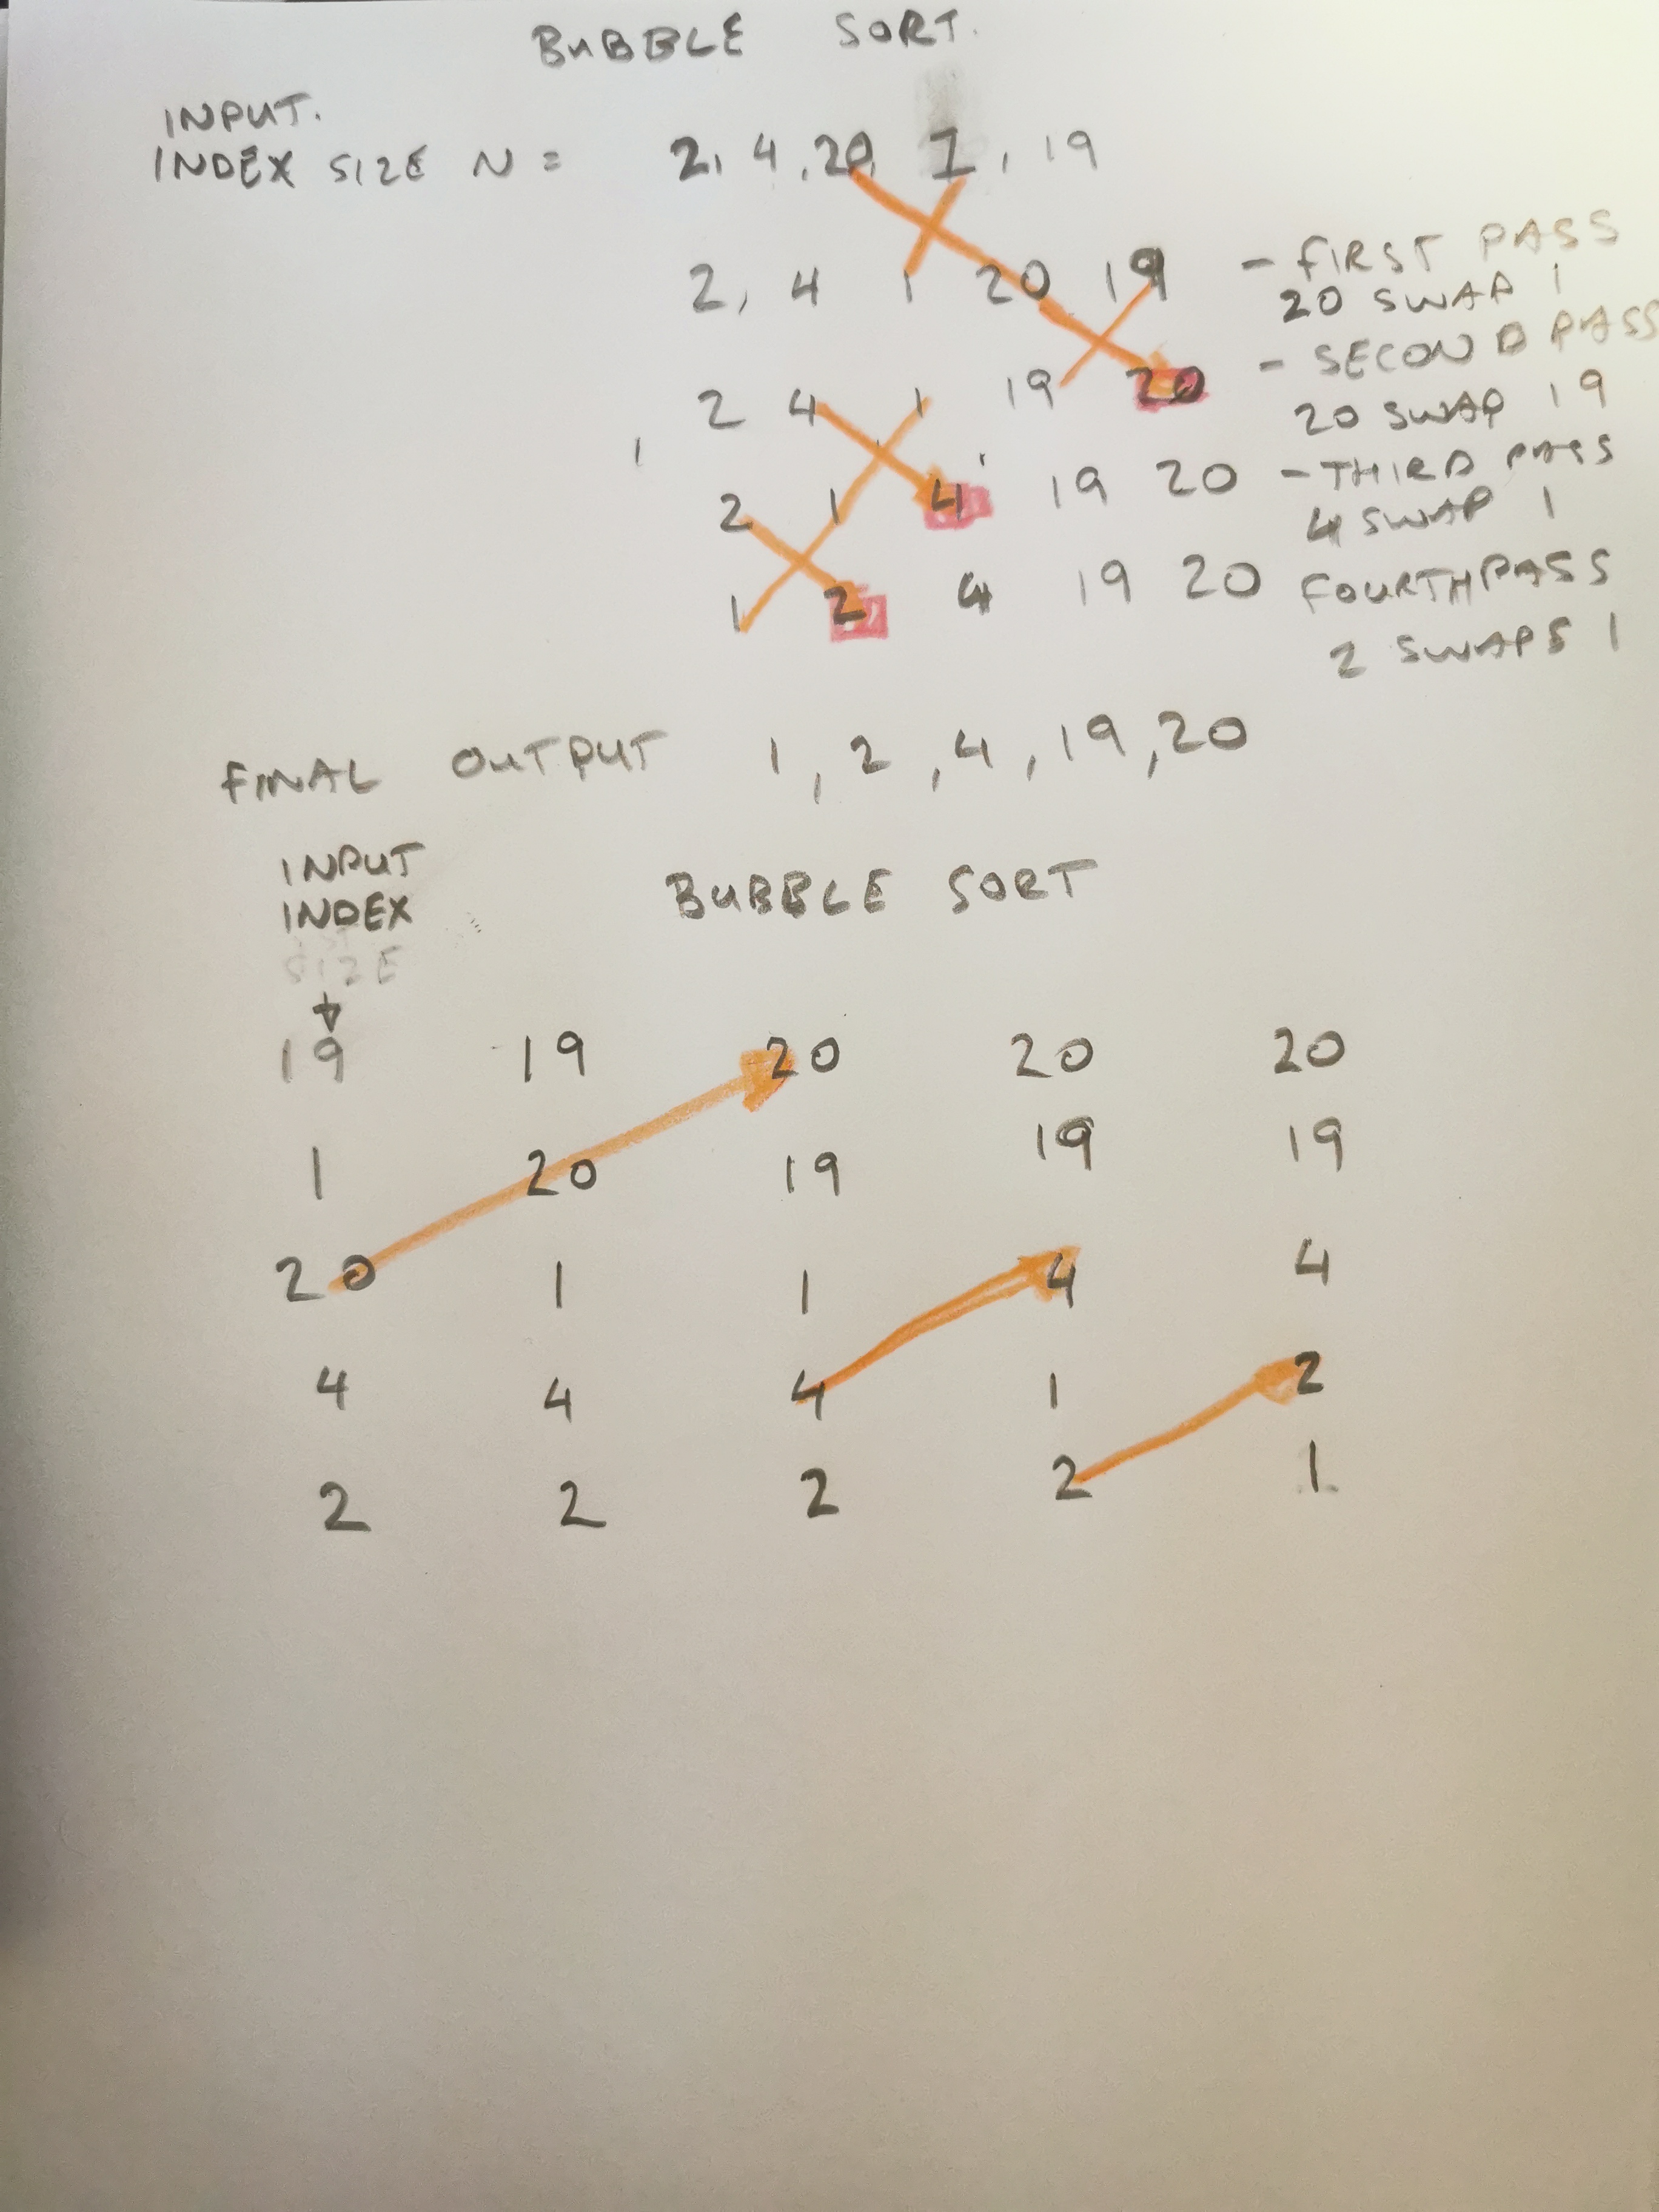 BUBBLE SORT.
INPUT.
INDEX SIZE N = 2, 4, 20, 1, 19
2, 4 1 20 19 - FIRST PASS
20 SWAP 1
2 4 1 19 20 - SECOND PASS
20 SWAP 19
2 1 4 19 20 - THIRD PASS
4 SWAP 1
1 2 4 19 20 FOURTH PASS
2 SWAPS 1
FINAL OUTPUT 1, 2, 4, 19, 20
INPUT
INDEX
SIZE
BUBBLE SORT
19 19 20 20 20
1 20 19 19 19
20 1 1 4 4
4 4 4 1 2
2 2 2 2 1